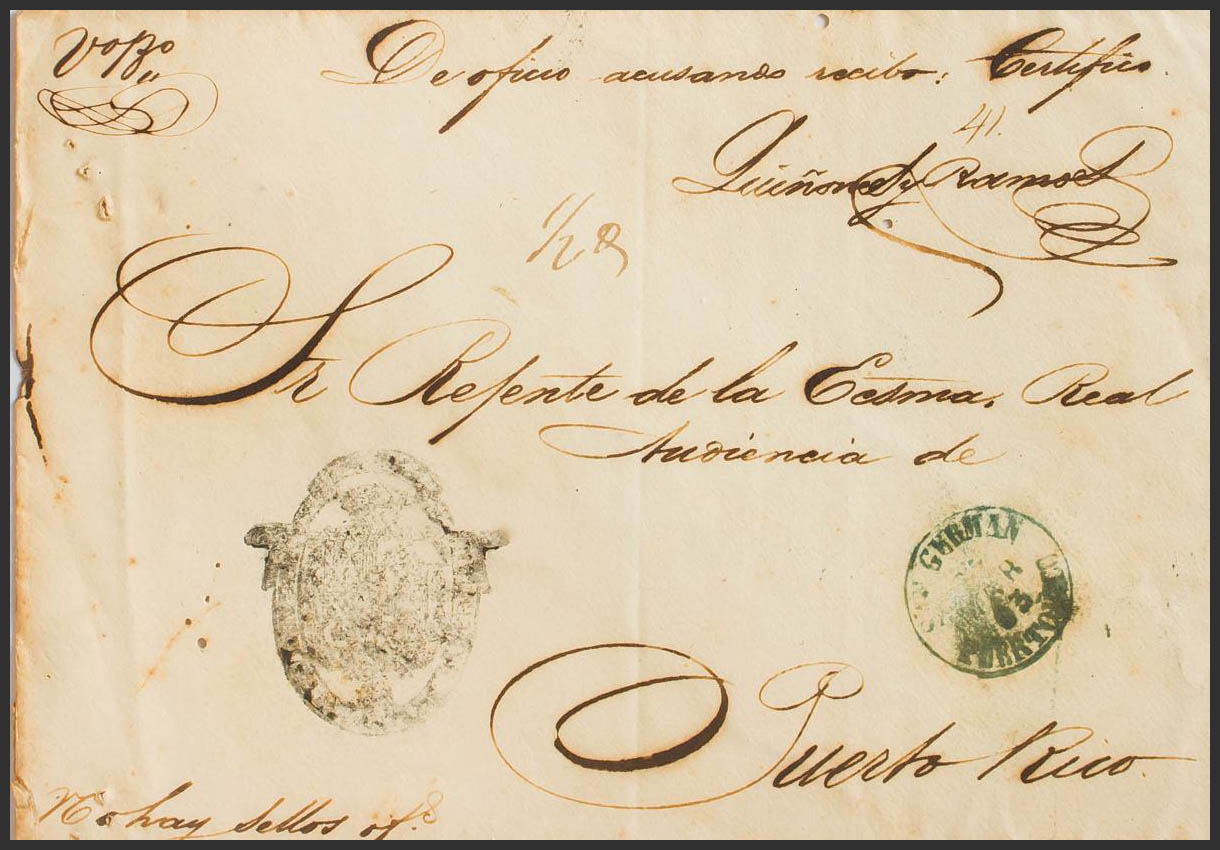 VoBo
De oficio acusando recibo: Certifico.
41.
Quiñones y Ramos
1/2 R
Sr Regente de la Ecsma. Real
Audiencia de
GERMAN
63
PUERTO
Puerto Rico.
No hay sellos of.s